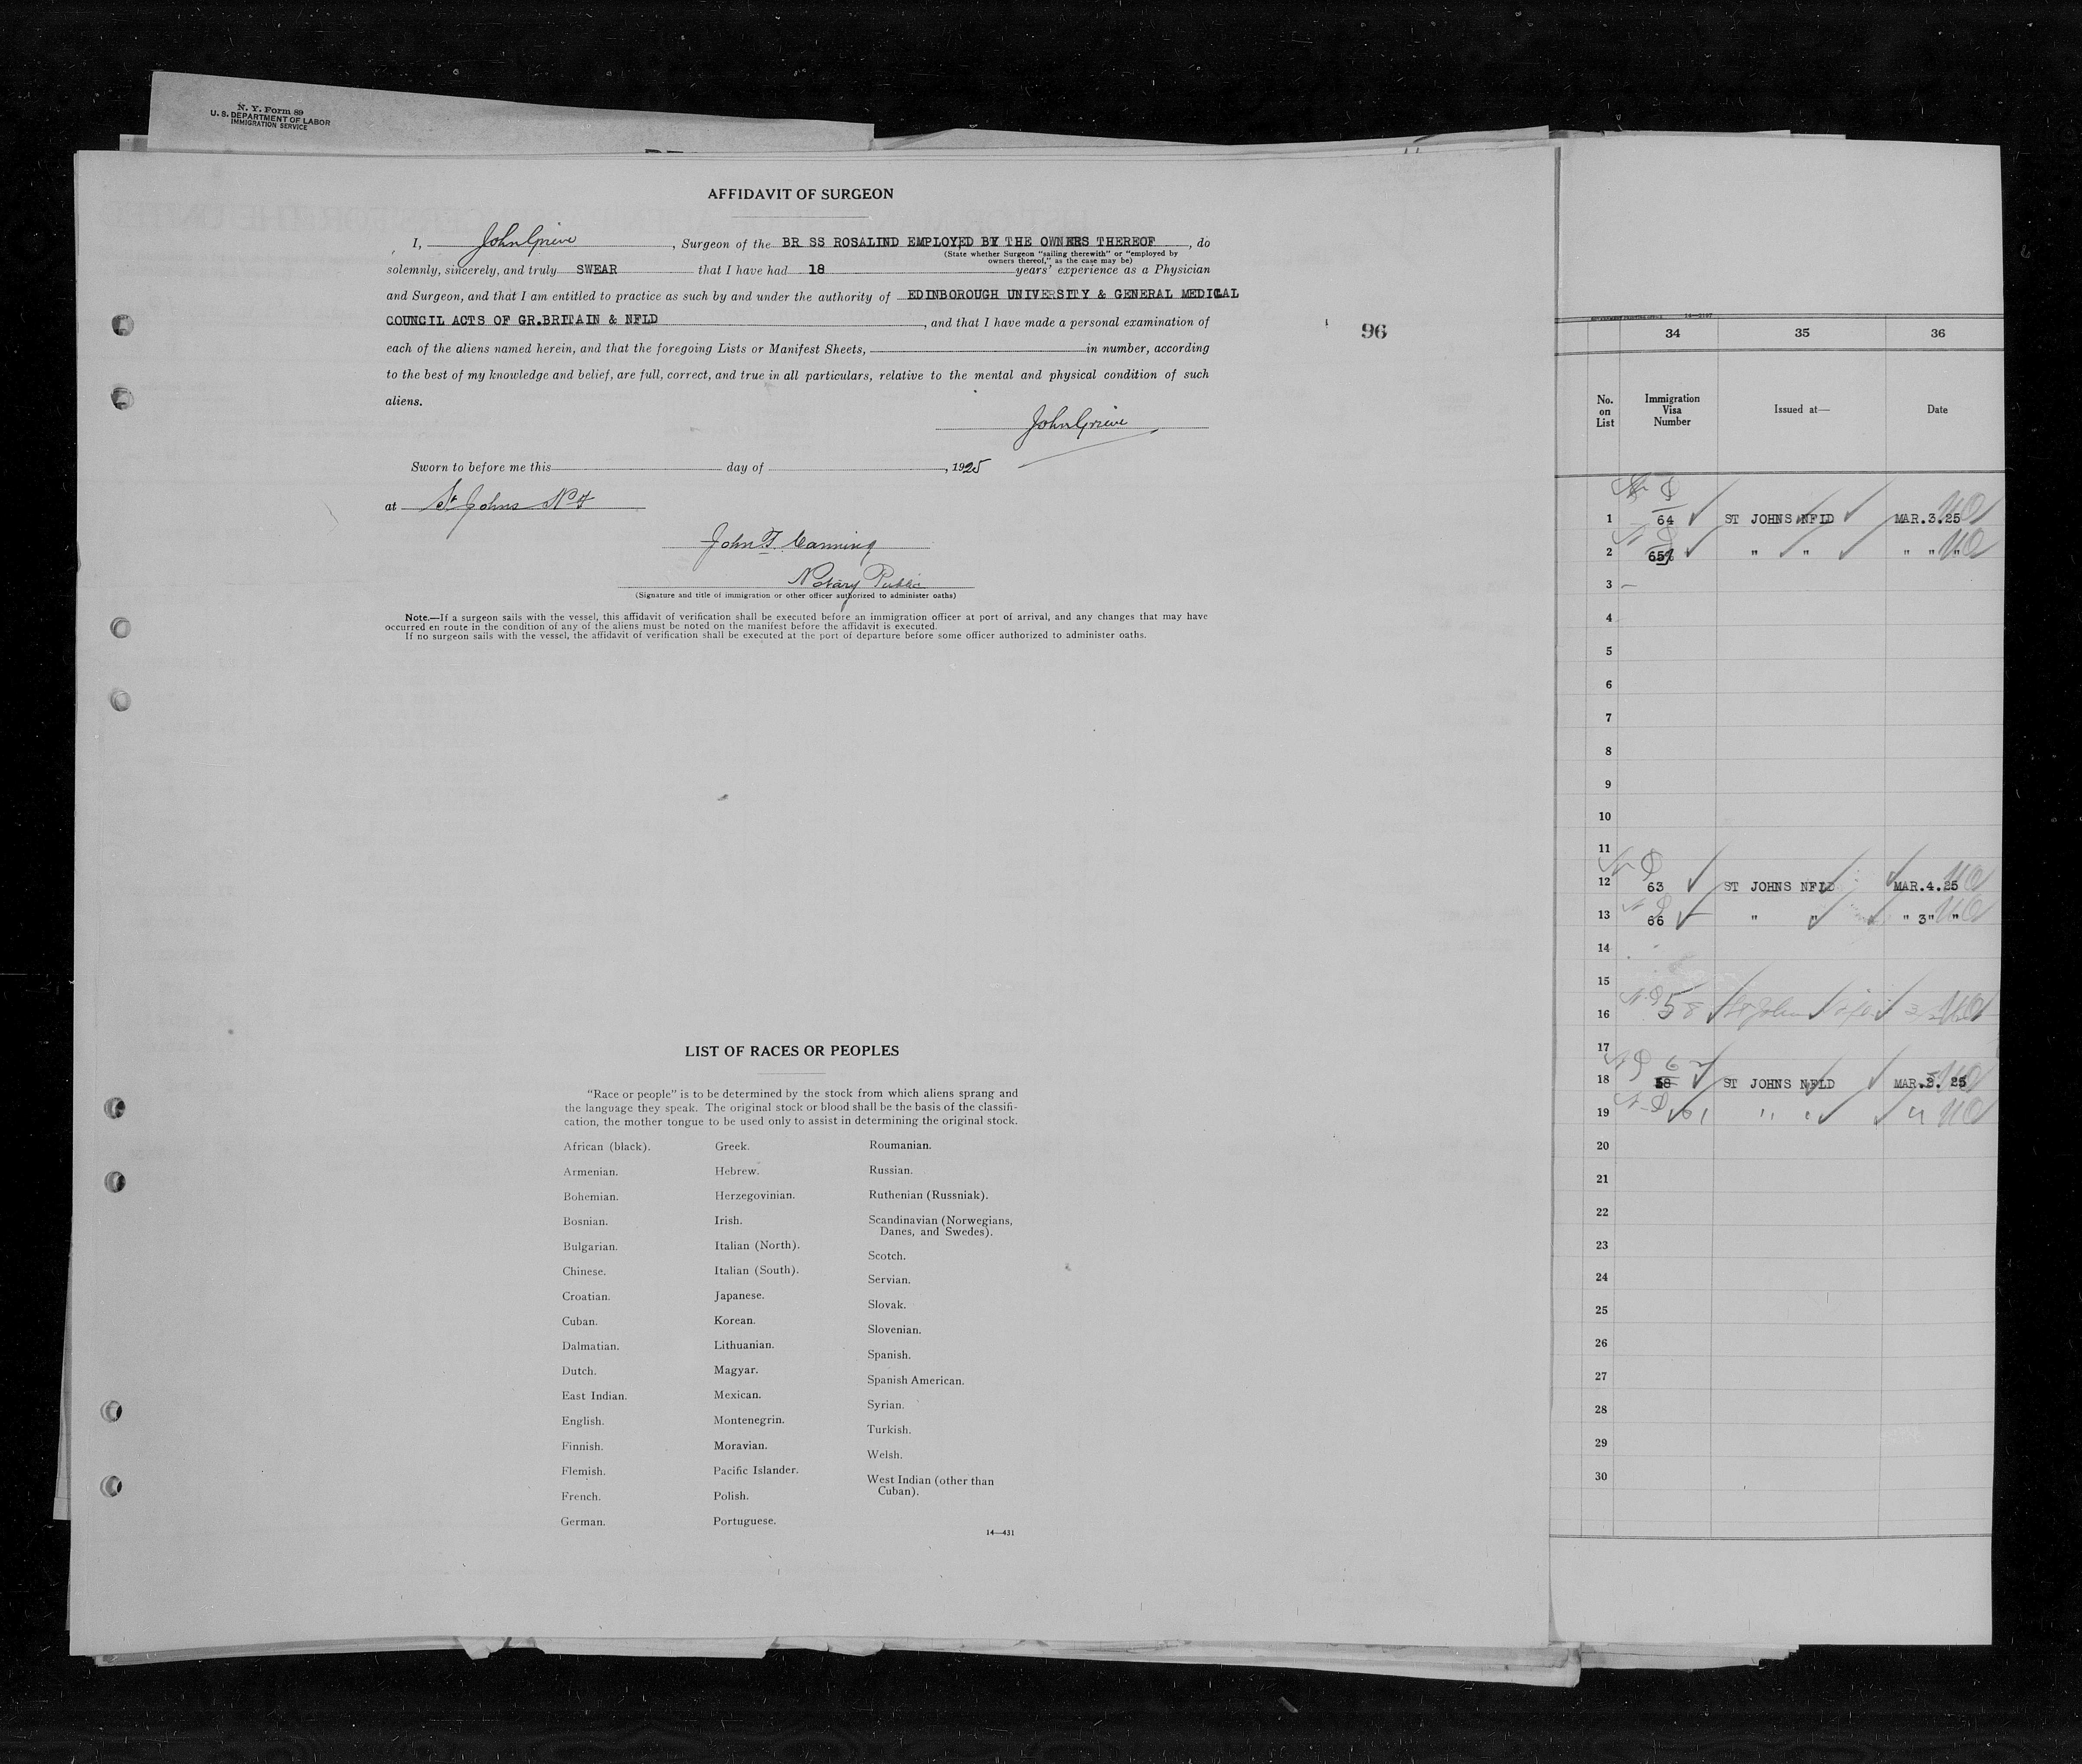 N. Y. Form 89
U. S. DEPARTMENT OF LABOR
IMMIGRATION SERVICE
AFFIDAVIT OF SURGEON
I, John Grieve, Surgeon of the BR SS ROSALIND EMPLOYED BY THE OWNERS THEREOF, do
(State whether Surgeon "sailing therewith" or "employed by
owners thereof," as the case may be)
solemnly, sincerely, and truly SWEAR that I have had 18 years' experience as a Physician
and Surgeon, and that I am entitled to practice as such by and under the authority of EDINBOROUGH UNIVERSITY & GENERAL MEDICAL
COUNCIL ACTS OF GR.BRITAIN & NFLD, and that I have made a personal examination of
each of the aliens named herein, and that the foregoing Lists or Manifest Sheets, in number, according
to the best of my knowledge and belief, are full, correct, and true in all particulars, relative to the mental and physical condition of such
aliens.
John Grieve
Sworn to before me this day of , 1925
at St Johns Nd
John T. Canning
Notary Public
(Signature and title of immigration or other officer authorized to administer oaths)
Note.—If a surgeon sails with the vessel, this affidavit of verification shall be executed before an immigration officer at port of arrival, and any changes that may have
occurred en route in the condition of any of the aliens must be noted on the manifest before the affidavit is executed.
If no surgeon sails with the vessel, the affidavit of verification shall be executed at the port of departure before some officer authorized to administer oaths.
96
LIST OF RACES OR PEOPLES
"Race or people" is to be determined by the stock from which aliens sprang and
the language they speak. The original stock or blood shall be the basis of the classifi-
cation, the mother tongue to be used only to assist in determining the original stock.
African (black).
Armenian.
Bohemian.
Bosnian.
Bulgarian.
Chinese.
Croatian.
Cuban.
Dalmatian.
Dutch.
East Indian.
English.
Finnish.
Flemish.
French.
German.
Greek.
Hebrew.
Herzegovinian.
Irish.
Italian (North).
Italian (South).
Japanese.
Korean.
Lithuanian.
Magyar.
Mexican.
Montenegrin.
Moravian.
Pacific Islander.
Polish.
Portuguese.
Roumanian.
Russian.
Ruthenian (Russniak).
Scandinavian (Norwegians,
Danes, and Swedes).
Scotch.
Servian.
Slovak.
Slovenian.
Spanish.
Spanish American.
Syrian.
Turkish.
Welsh.
West Indian (other than
Cuban).
14—431
34 35 36
No. on List Immigration Visa Number Issued at— Date
1 64 ST JOHNS NFLD MAR.3.25
2 65 " " " " "
3
4
5
6
7
8
9
10
11
12 63 ST JOHNS NFLD MAR.4.25
13 66 " " " 3" "
14
15
16 58 St Johns
17
18 62 ST JOHNS NFLD MAR. 25
19 61 " " "
20
21
22
23
24
25
26
27
28
29
30